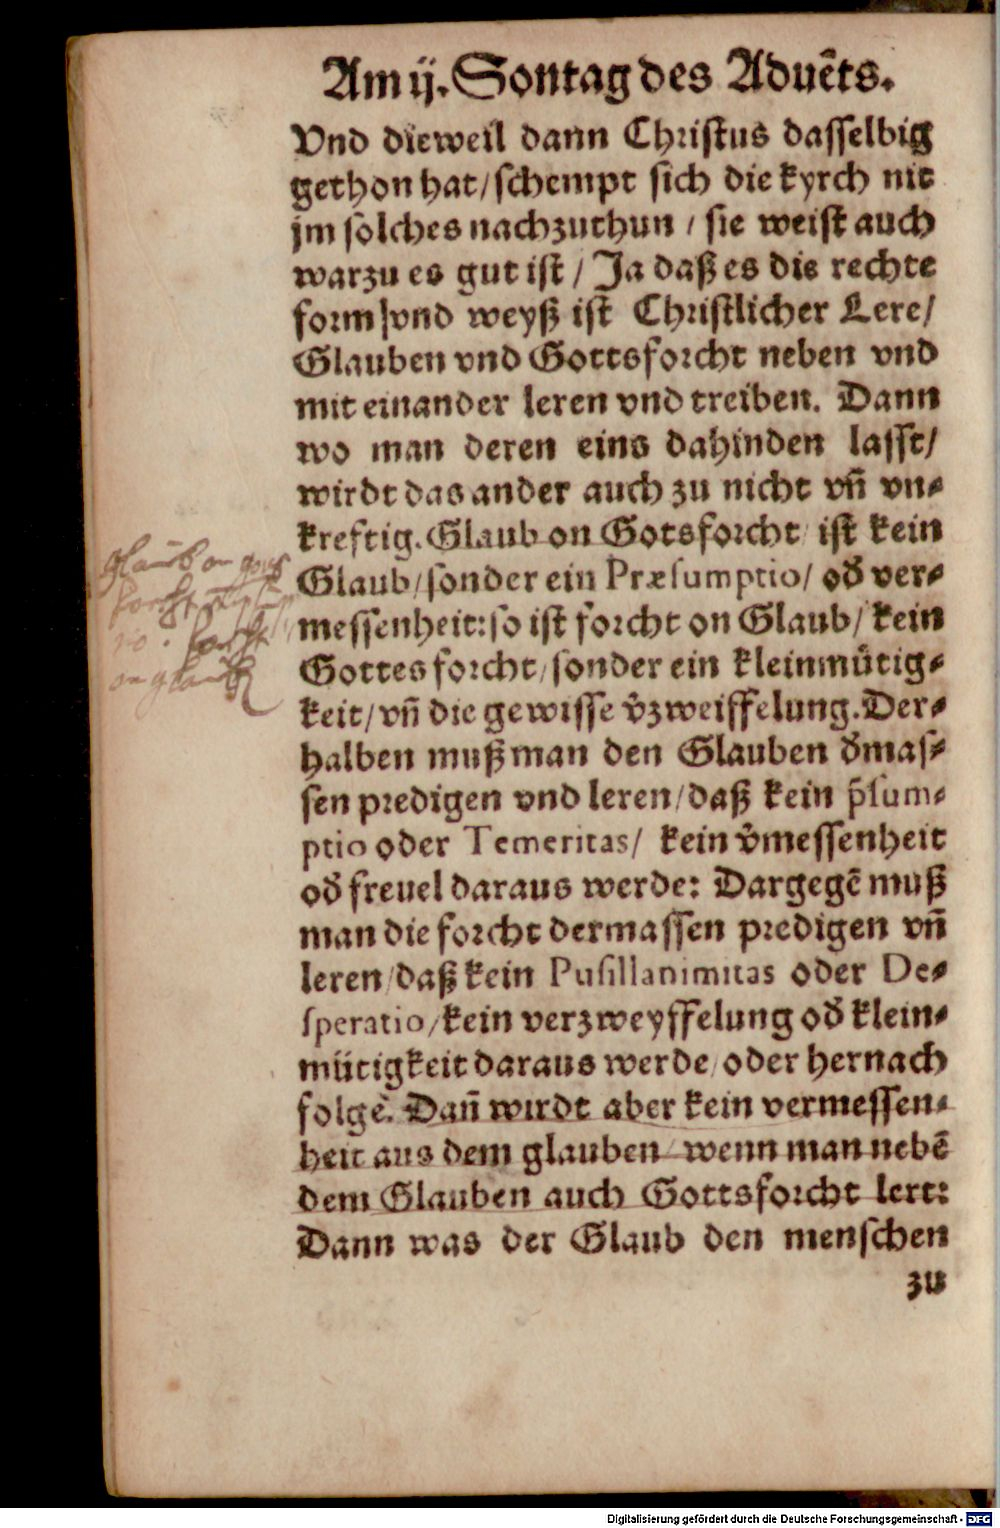 Am ij. Sontag des Aduẽts.
Vnd dieweil dann Christus dasselbig
gethon hat / schempt sich die kyrch nit
jm solches nachzuthun / sie weist auch
warzu es gut ist / Ja daß es die rechte
form vnd weyß ist Christlicher Lere /
Glauben vnd Gottsforcht neben vnd
mit einander leren vnd treiben. Dann
wo man deren eins dahinden lasst /
wirdt das ander auch zu nicht vñ vn-
kreftig. Glaub on Gotsforcht ist kein
Glaub / sonder ein Præsumptio / od̓ ver-
messenheit: so ist forcht on Glaub / kein
Gottes forcht / sonder ein kleinmütig-
keit / vñ die gewisse v̓zweiffelung. Der-
halben muß man den Glauben d̓mas-
sen predigen vnd leren / daß kein p̃sum-
ptio oder Temeritas / kein v̓messenheit
od̓ freuel daraus werde: Dargegẽ muß
man die forcht dermassen predigen vñ
leren / daß kein Pusillanimitas oder De-
speratio / kein verzweyffelung od̓ klein-
mütigkeit daraus werde / oder hernach
folgẽ. Dañ wirdt aber kein vermessen-
heit aus dem glauben / wenn man nebẽ
dem Glauben auch Gottsforcht lert:
Dann was der Glaub den menschen
zu
glaub on gots
forcht
forcht
on glaub
Digitalisierung gefördert durch die Deutsche Forschungsgemeinschaft - DFG